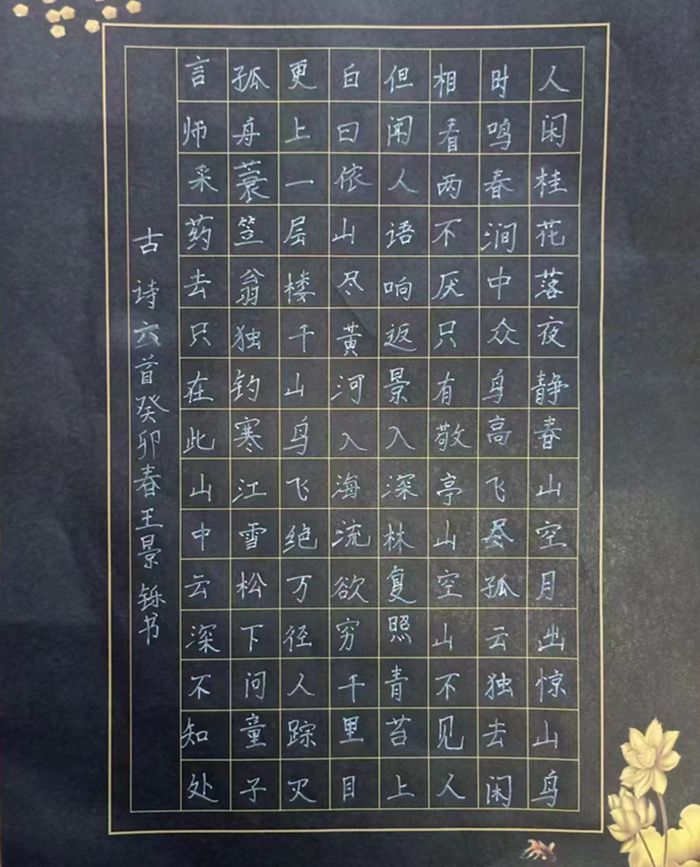 人闲桂花落夜静春山空月出惊山鸟
时鸣春涧中众鸟高飞尽孤云独去闲
相看两不厌只有敬亭山空山不见人
但闻人语响返景入深林复照青苔上
白日依山尽黄河入海流欲穷千里目
更上一层楼千山鸟飞绝万径人踪灭
孤舟蓑笠翁独钓寒江雪松下问童子
言师采药去只在此山中云深不知处
古诗六首癸卯春王景铄书